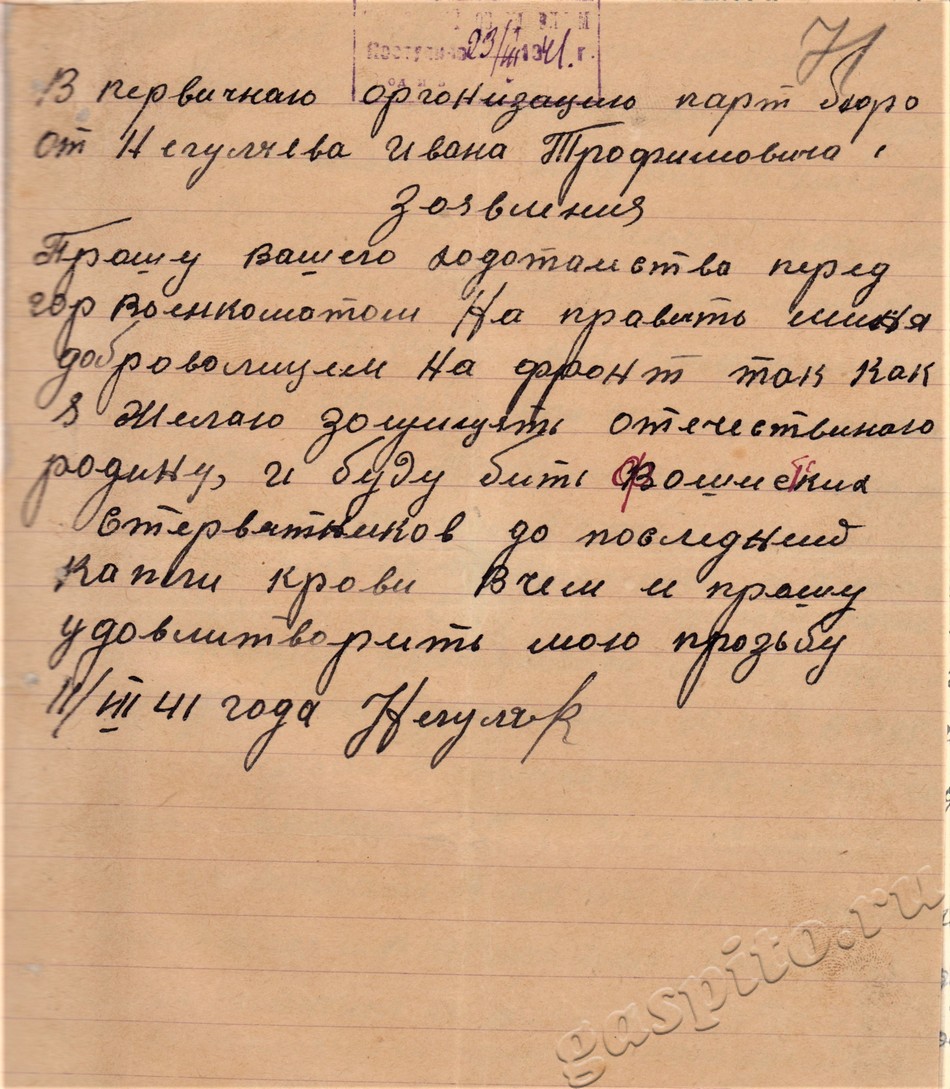 Поступило 23/III 1941. г.
71
В первичнаюоргонизацию парт бюро
от Негуляева Ивана Трофимовича
Зоявления
Прошу вашего ходотайства перед
гор военкоматом На править миня
доброволицем на фронт так как
я желаю зощищять отечествинаю
родину, и буду бить фошиських
стервятников до последний
капли крови В чем и прошу
удовлитворить мою прозьбу
11/III 41 года
gaspito.ru